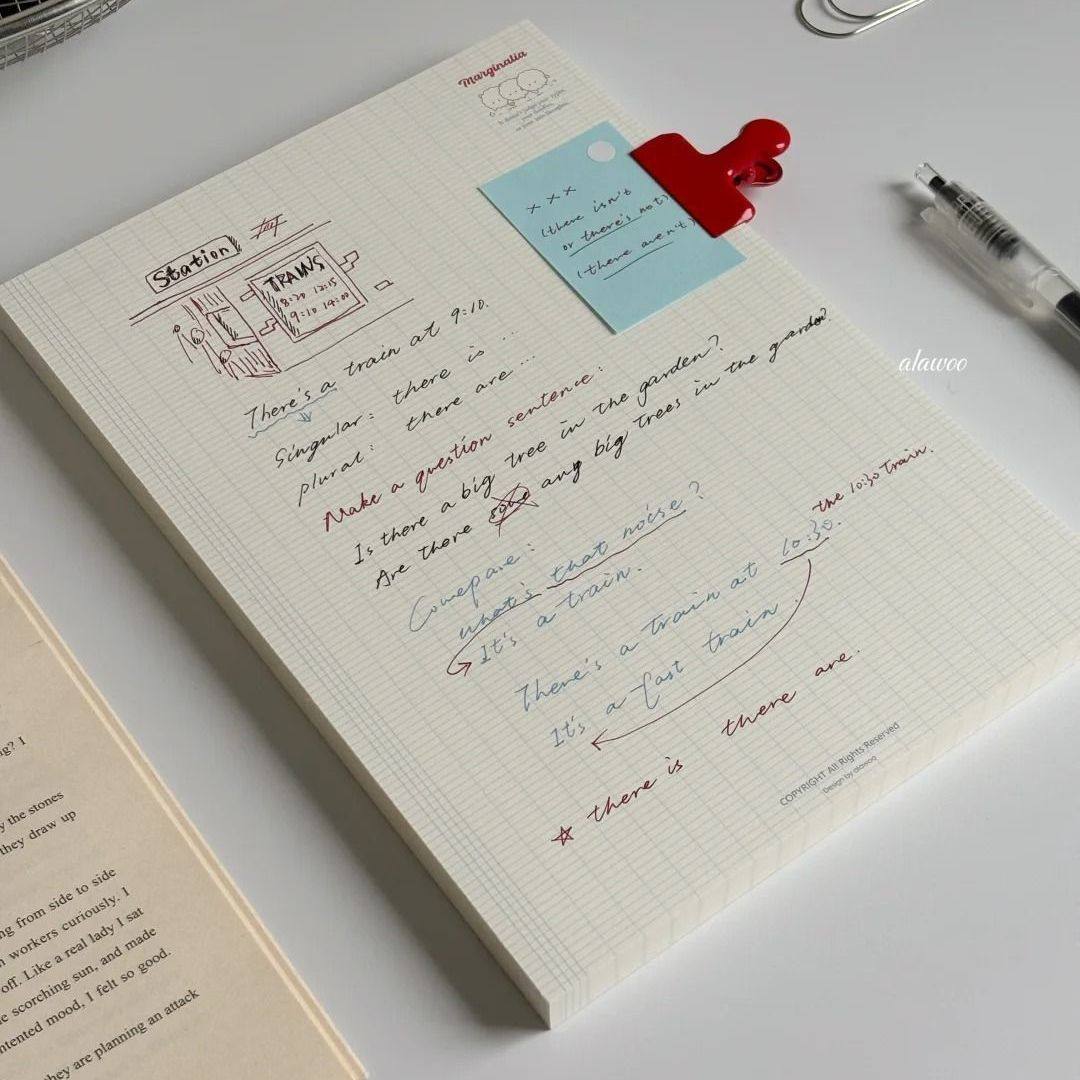 Marginalia
× × ×
(there isn't
or there's not)
(there aren't)
Station
TRAINS
8:20 12:15
9:10 14:00
There's a train at 9:10.
Singular: there is ...
plural: there are ...
Make a question sentence:
Is there a big tree in the garden?
Are there some any big trees in the garden?
Comepare:
what's that noise?
It's a train.
the 10:30 train.
There's a train at 10:30.
It's a fast train.
☆ there is there are.
COPYRIGHT All Rights Reserved
Design by alawoo
alawoo
g? I
y the stones
they draw up
ng from side to side
workers curiously. I
off. Like a real lady I sat
scorching sun, and made
mood, I felt so good.
they are planning an attack